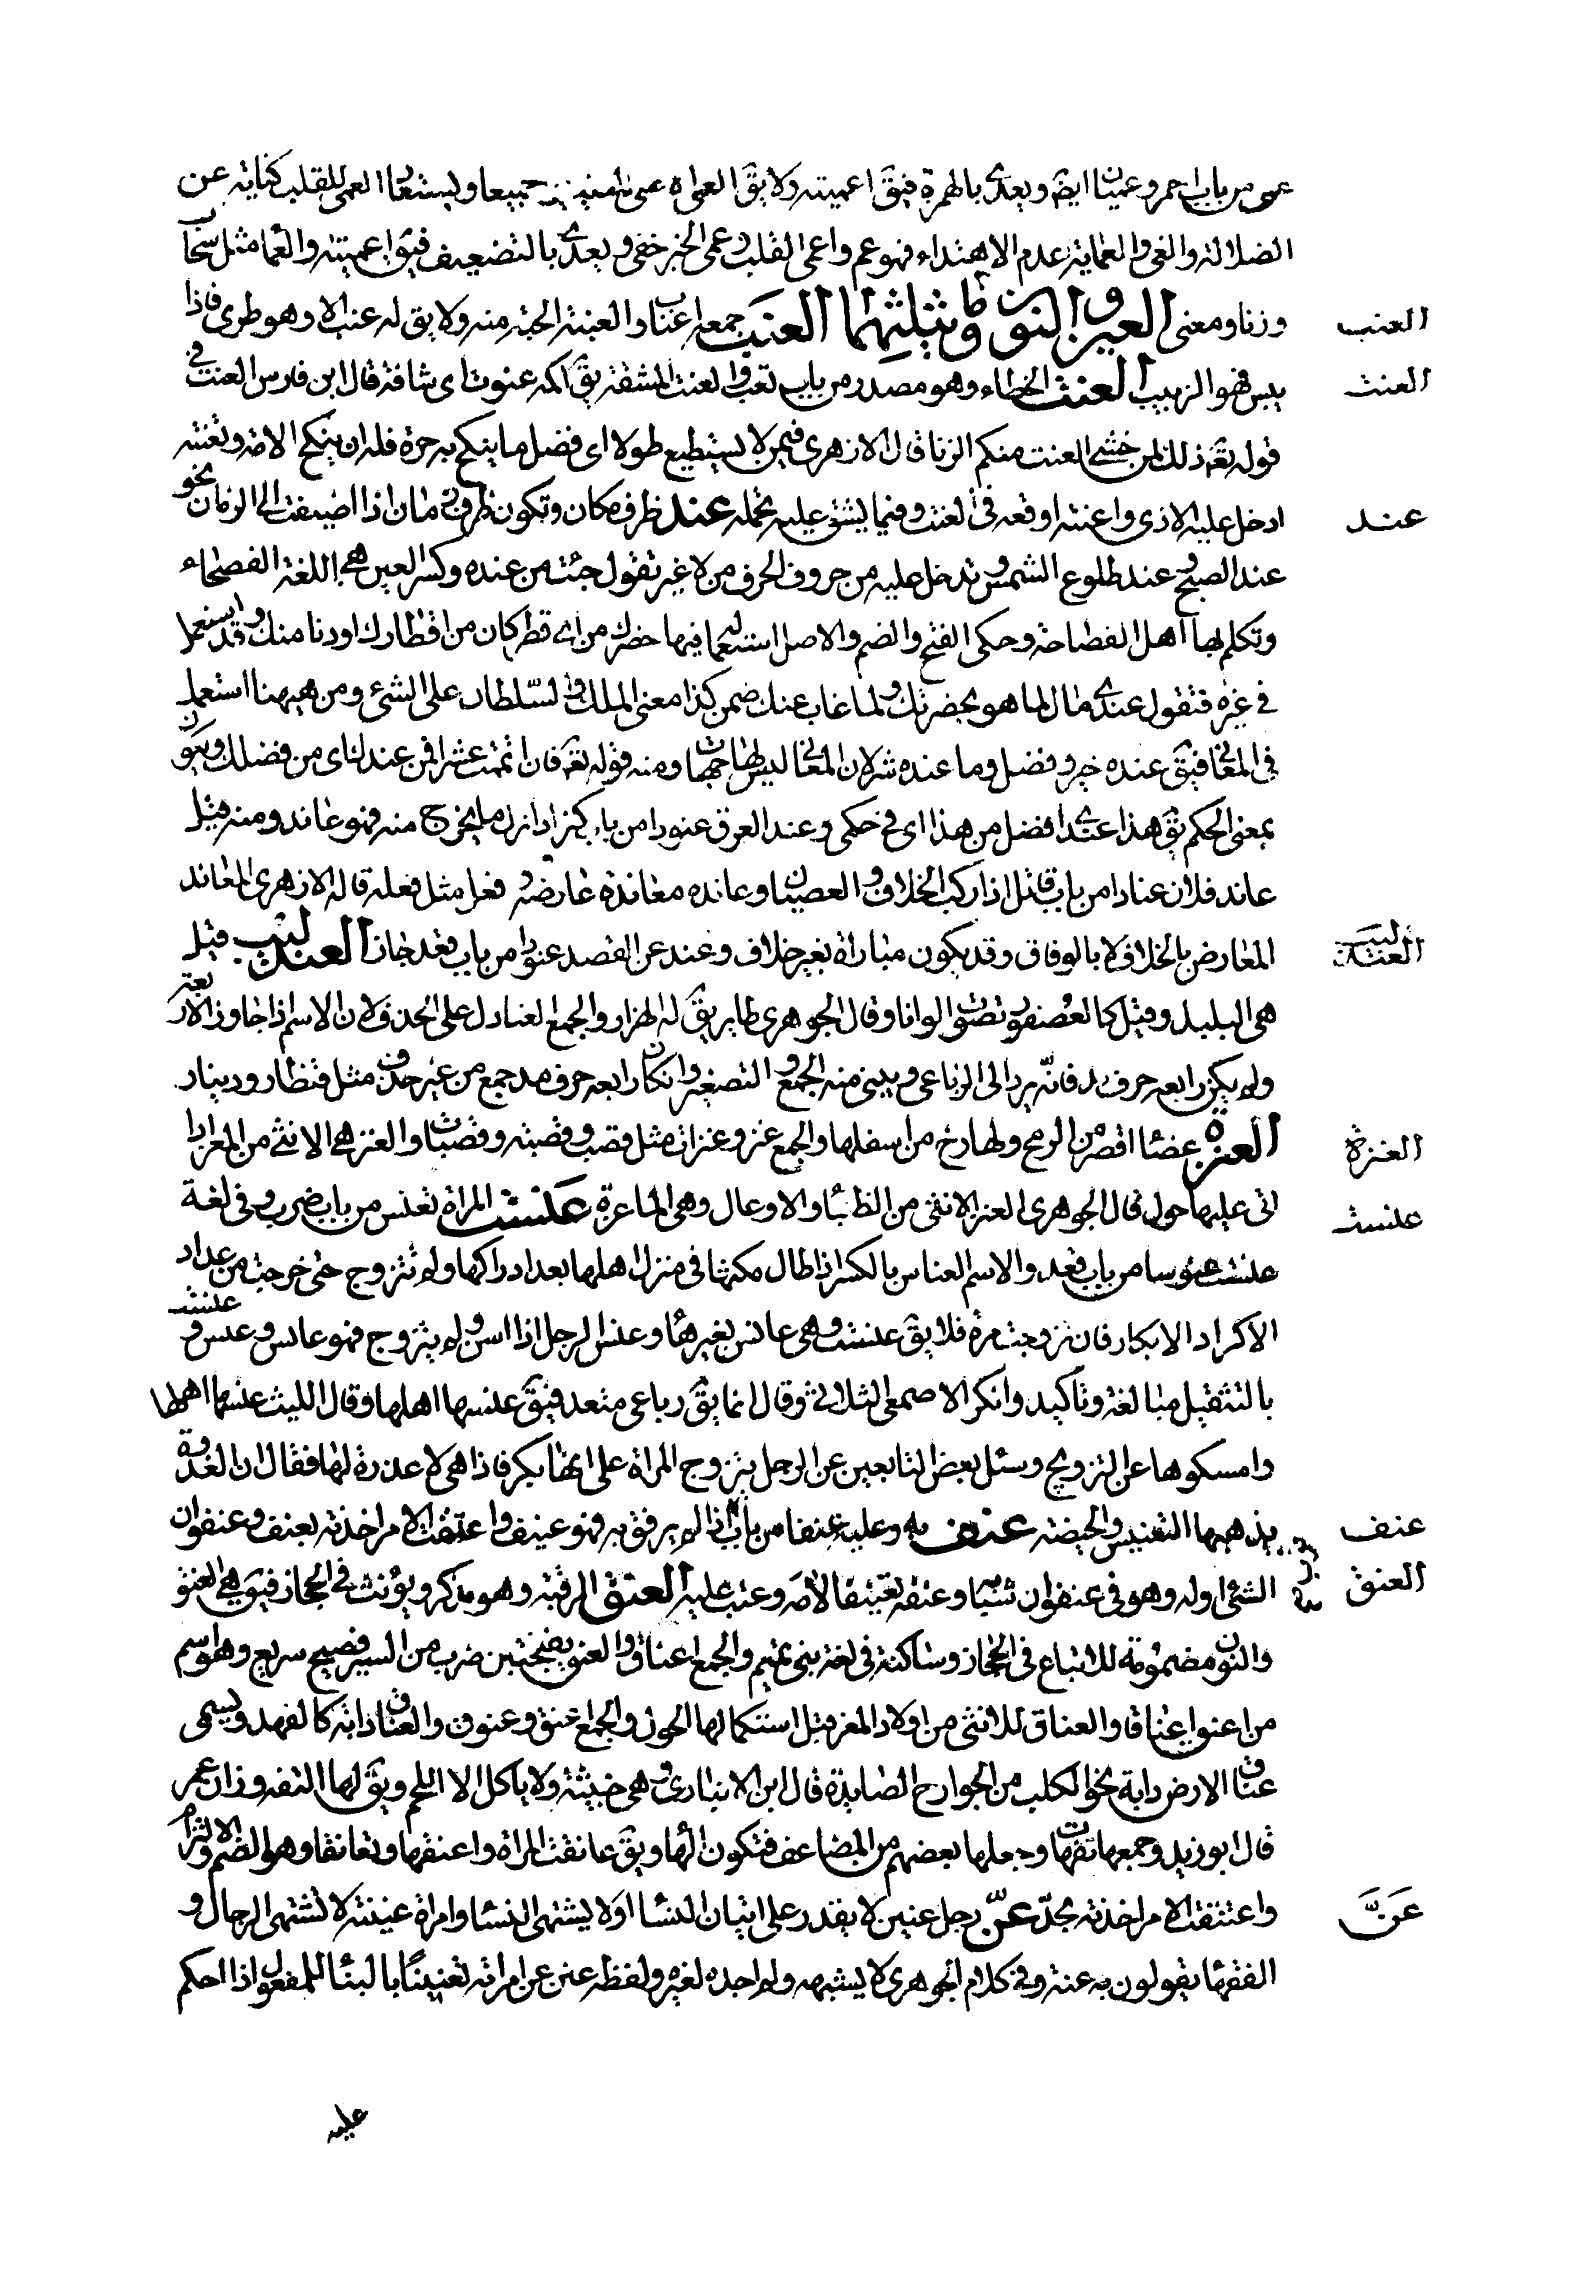 عمى من باب حمر وعميان ايضا ويعدى بالهمزة فيق اعميته ولا يق العمى الا عمى العينين جميعا ويستعار العمى للقلب كناية عن
الضلالة والغى والعماية عدم الاهتداء فهو عم واعمى القلب وعمى الخبر خفى ويعدى بالتضعيف فيق عميته والعما مثل سحاب
العنب
وزنا ومعنى العين والنون وما يثلثهما العنب جمعه اعناب والعنبة الحبة منه ولا يق له عنب الا وهو طرى فاذا
العنت
يبس فهو الزبيب العنت الخطاء وهو مصدر من باب تعب والعنت المشقة يق اكمة عنوت اى شاقة قال ابن فارس العنت فى
قوله تعه ذلك لمن خشى العنت منكم الزنا قال الازهرى فيمن لا يستطيع طولا اى فضل ما ينكح به حرة فله ان ينكح الامة وتعنته
عند
ادخل عليه الاذى واعنته اوقعه فى العنت وفيما يشق عليه تحمله عند ظرف مكان وتكون ظرف زمان اذا اضيفت الى الزمان نحو
عند الصبح وعند طلوع الشمس وتدخل عليه من حروف الجر من لا غير تقول جئت من عنده وكسر العين هى اللغة الفصحاء
وتكلم بها اهل الفصاحة وحكى الفتح والضم والاصل استعماله فيما حضرك من اى قطر كان من اقطارك او دنا منك وقد استعمل
فى غيره فتقول عندى مال لما هو بحضرتك ولما غاب عنك ضمن كذا معنى الملك والسلطان على الشئ ومن هيهنا استعمل
فى المعانى فيق عنده خير وفضل وما عنده شر لان المعانى ليس لها جهات ومنه قوله تعه فان اتممت عشرا فمن عندك اى من فضلك ويكون
بمعنى الحكم يق هذا عندى افضل من هذا اى فى حكمى وعند العرق عنودا من باب كثر اذا نزل ما يخرج منه فهو عاند ومنه قيل
عاند فلان عنادا من باب قاتل اذا ركب الخلاف والعصيان وعانده معاندة عارضه وفعل مثل فعله قال الازهرى المعاند
العندليب
المعارض بالخلاف لا بالوفاق وقد يكون مباراة بغير خلاف وعند عن القصد عنودا من باب قعد جاز العندليب قيل
هى البلبل وقيل كالعصفور يصوت الوانا وقال الجوهرى طاير يق له الهزار والجمع العنادل على الحذف لان الاسم اذا جاوز الاربعة
ولم يكن رابعه حرف مد فانه يرد الى الرباعى ويبنى منه الجمع والتصغير وان كان رابعه حرف مد جمع من غير حذف مثل قنطار ودينار
العنزة
العنزة عصا اقصر من الرمح ولها زج من اسفلها والجمع عنز وعنزات مثل قصب وقصبة وقصبات والعنز هى الانثى من المعز اذا
علنست
اتى عليها حول قال الجوهرى العنز الانثى من الظباء والاوعال وهى الماعزة علنست المراة تعنس من باب ضرب وفى لغة
علنست عنوسا من باب قعد والاسم العناس بالكسر اذا طال مكثها فى منزل اهلها بعد ادراكها ولم تتزوج حتى خرجت من عداد
الاكراد الابكار فان تزوجت مرة فلا يق علنست وهى عانس بغير هاء وعنس الرجل اذا اسن ولم يتزوج فهو عانس وعنس وعلنست
بالتثقيل مبالغة وتاكيد وانكر الاصمعى الثلاثى وقال انما يق رباعى متعد فيق عنسها اهلها وقال الليث عنسها اهلها
وامسكوها عن التزويج وسئل بعض التابعين عن الرجل يتزوج المراة على انها بكر فاذا هى لا عذرة لها فقال ان العذرة
عنف
يذهبها التعنيس والحيضة عنف به وعليه عنفا من باب اذا لم يرفق به فهو عنيف واعتنفت الامر اخذته بعنف وعنفوان
العنق
الشئ اوله وهو فى عنفوان شبابه وعنفه تعنيفا لامه وعتب عليه العنق الرقبة وهو مذكر ويؤنث فى الحجاز فيق هى العنق
والنون مضمومة للاتباع فى الحجاز وساكنة فى لغة بنى تميم والجمع اعناق والعنق بفتحتين ضرب من السير فصيح سريع وهو اسم
من اعنق اعناقا والعناق للانثى من اولاد المعز قبل استكمالها الحول والجمع اعنق وعنوق والعناق دابة كالفهد ويسمى
عناق الارض دابة نحو الكلب من الجوارح الصايدة قال ابن الانبارى وهى خبيثة ولا ياكل الا اللحم ويق لها التفه وزان عمر
قال ابو زيد وجمعها تفهات وجعلها بعضهم من المضاعف فتكون الهاء ويق عانقت المراة واعتنقها وتعانقا وهو الضم والالتزام
عَنَّ
واعتنقت الامر اخذته بجد عنّ رجل عنين لا يقدر على اتيان النساء او لا يشتهى النساء وامراة عنينة لا تشتهى الرجال و
الفقهاء يقولون به عنة وفى كلام الجوهرى لا يشبهه ولم اجده لغيره ولفظه عنن عن امراته تعنينا بالبناء للمفعول اذا احكم
عليه